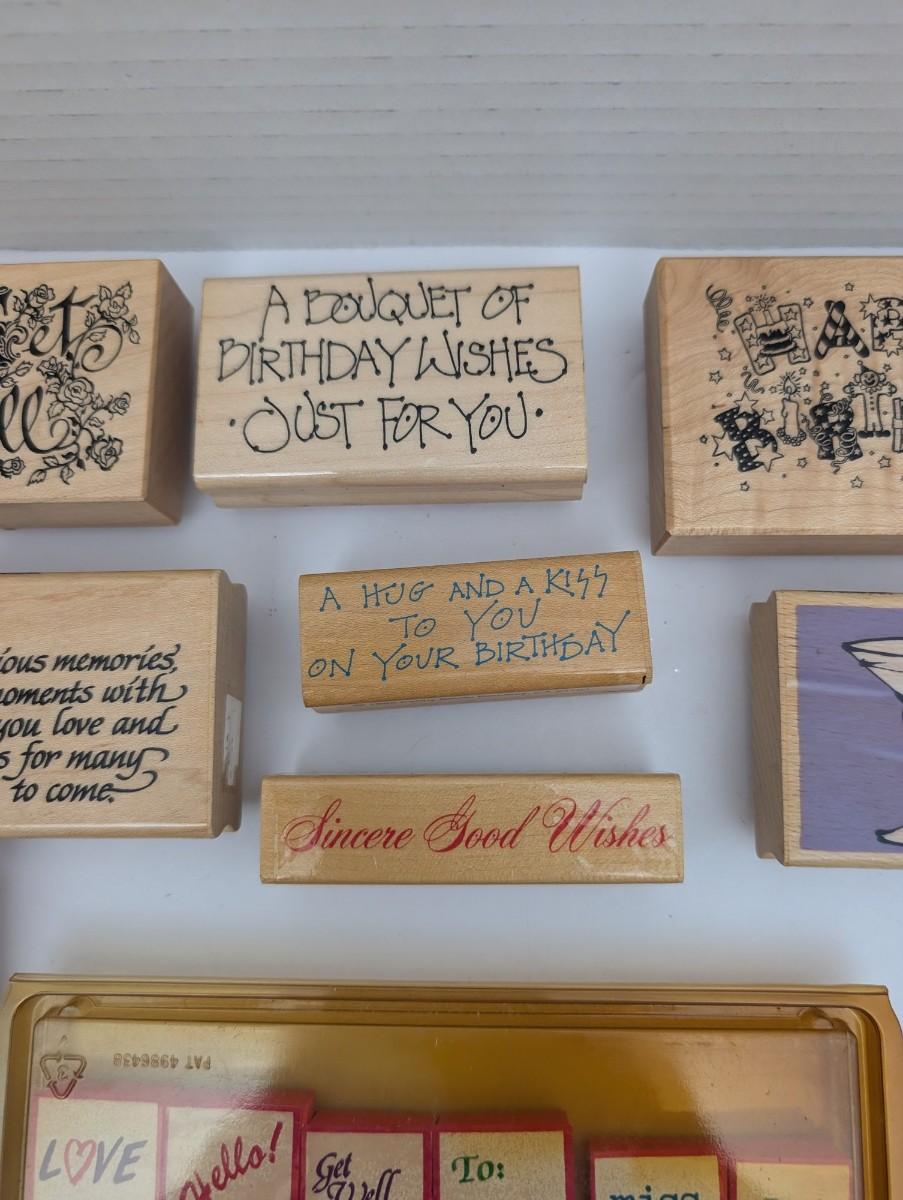 A BOUQUET OF
BIRTHDAY WISHES
·JUST FOR YOU·
A HUG AND A KISS
TO YOU
ON YOUR BIRTHDAY
memories,
with
you love and
for many
to come.
Sincere Good Wishes
PAT 4986438
3
LOVE
Hello!
Get
Well
To:
miss